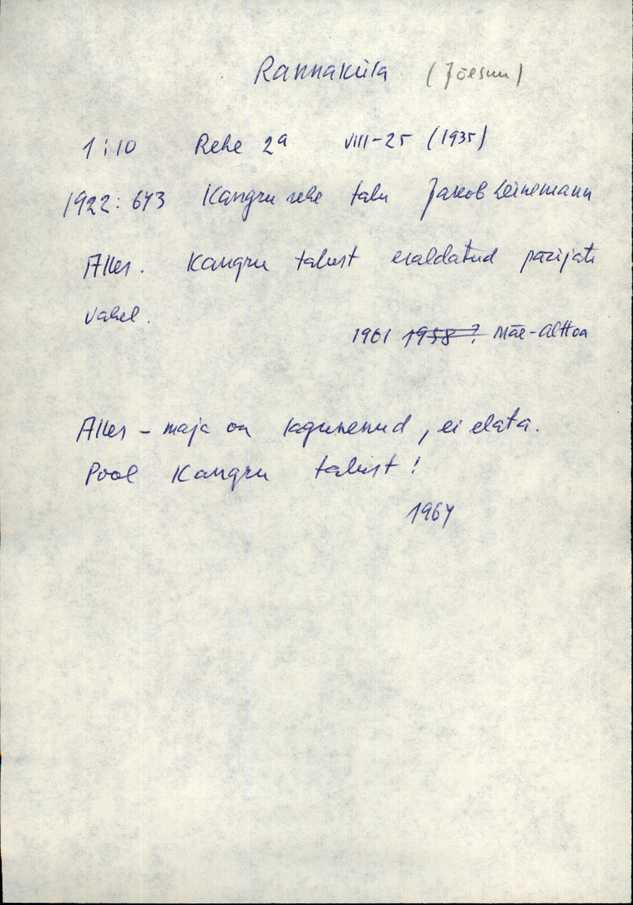 Rannaküla (Jõesuu)
1:10 Rehe 2a VIII-25 (1935)
1922: 643 Kangru rehe talu Jakob Leinemann
Alles. Kangru talust eraldatud pärijate
vahel.
1961 1958? Mäe-Alttoa
Alles - maja on lagunenud, ei elata.
Pool Kangru talust!
1964